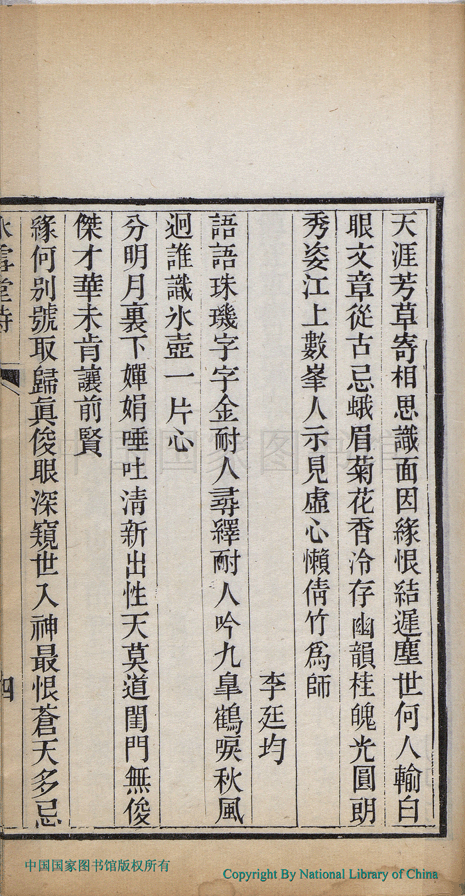 天涯芳草寄相思識面因緣恨結遲塵世何人輸白
眼文章從古忌蛾眉菊花香冷存幽韻桂魄光圓朗
秀姿江上數峯人示見虛心懶倩竹爲師
李廷均
語語珠璣字字金耐人尋繹耐人吟九臯鶴唳秋風
迥誰識氷壺一片心
分明月裏下嬋娟唾吐淸新出性天莫道閨門無俊
傑才華未肯讓前賢
緣何别號取歸眞俊眼深窺世入神最恨蒼天多忌
雪堂詩
四
中国国家图书馆
中国国家图书馆版权所有
Copyright By National Library of China